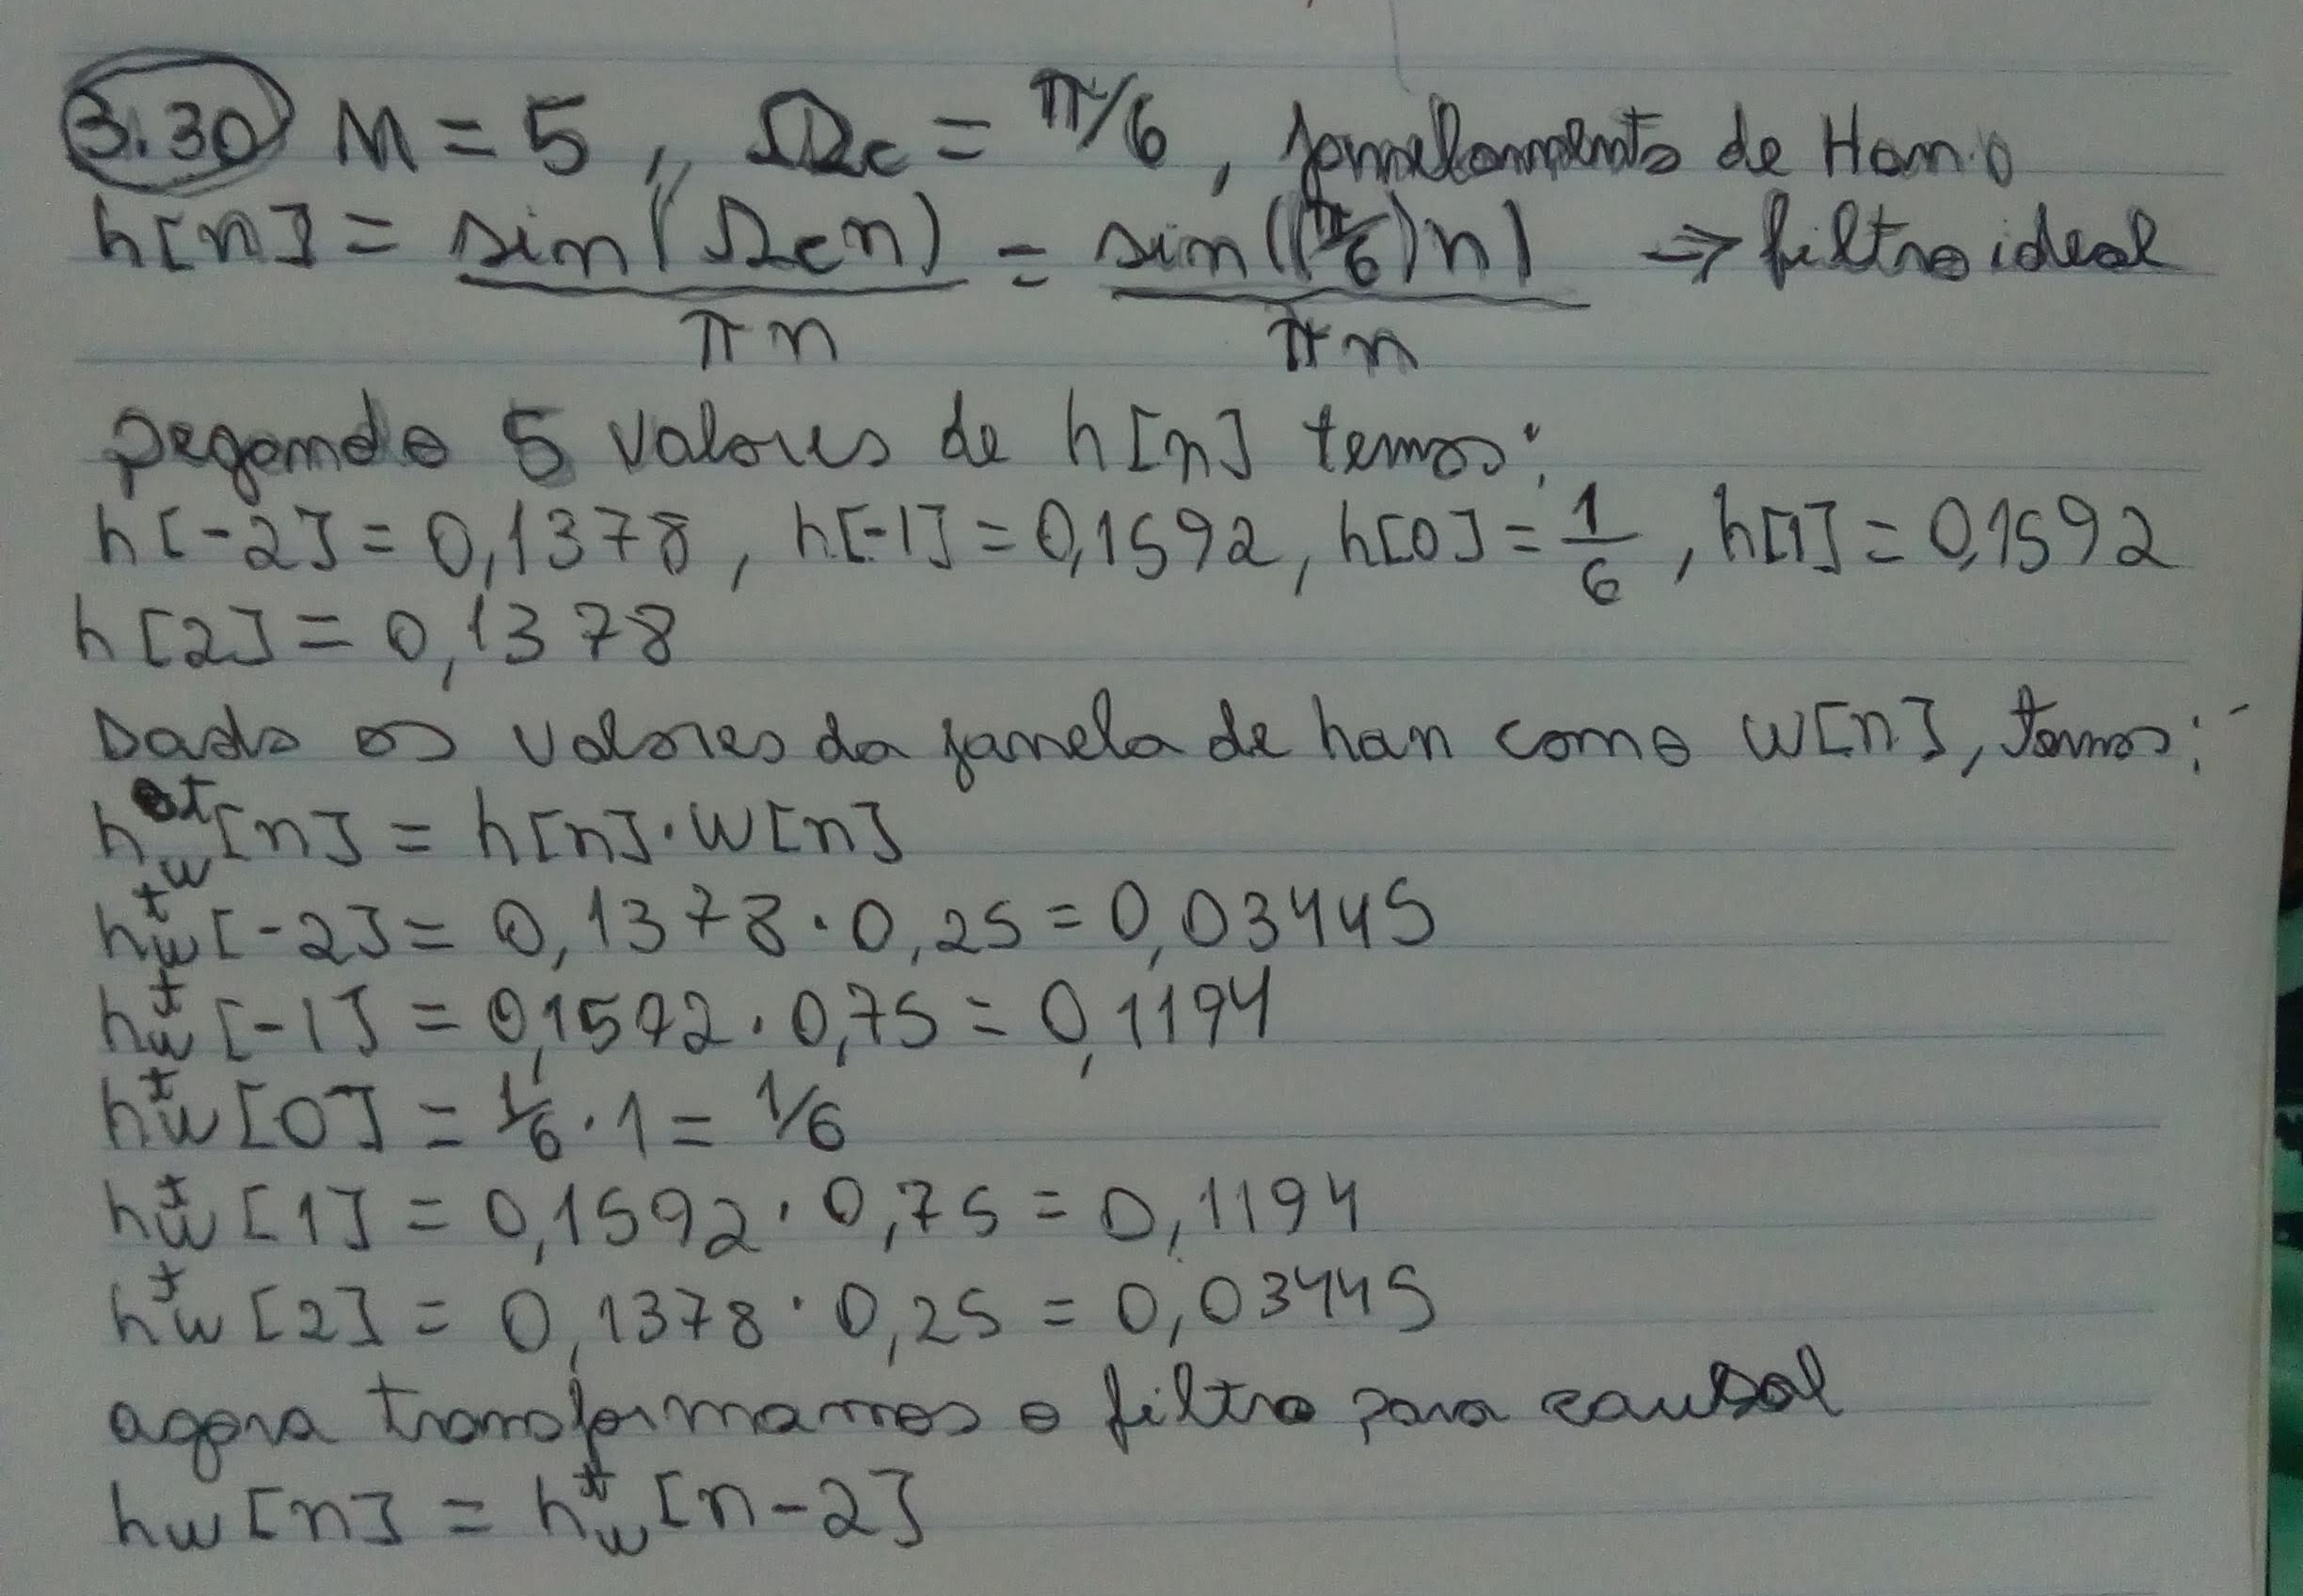 3.30 M = 5, Ωc = π/6, janelamento de Hann
h[n] = sin(Ωcn)/πn = sin((π/6)n)/πn → filtro ideal
pegando 5 valores de h[n] temos:
h[-2] = 0,1378, h[-1] = 0,1592, h[0] = 1/6, h[1] = 0,1592
h[2] = 0,1378
Dado os valores da janela de han como w[n], temos:
h_w^t[n] = h[n]·w[n]
h_w^t[-2] = 0,1378·0,25 = 0,03445
h_w^t[-1] = 0,1592·0,75 = 0,1194
h_w^t[0] = 1/6·1 = 1/6
h_w^t[1] = 0,1592·0,75 = 0,1194
h_w^t[2] = 0,1378·0,25 = 0,03445
agora transformamos o filtro para causal
hw[n] = h_w^t[n-2]